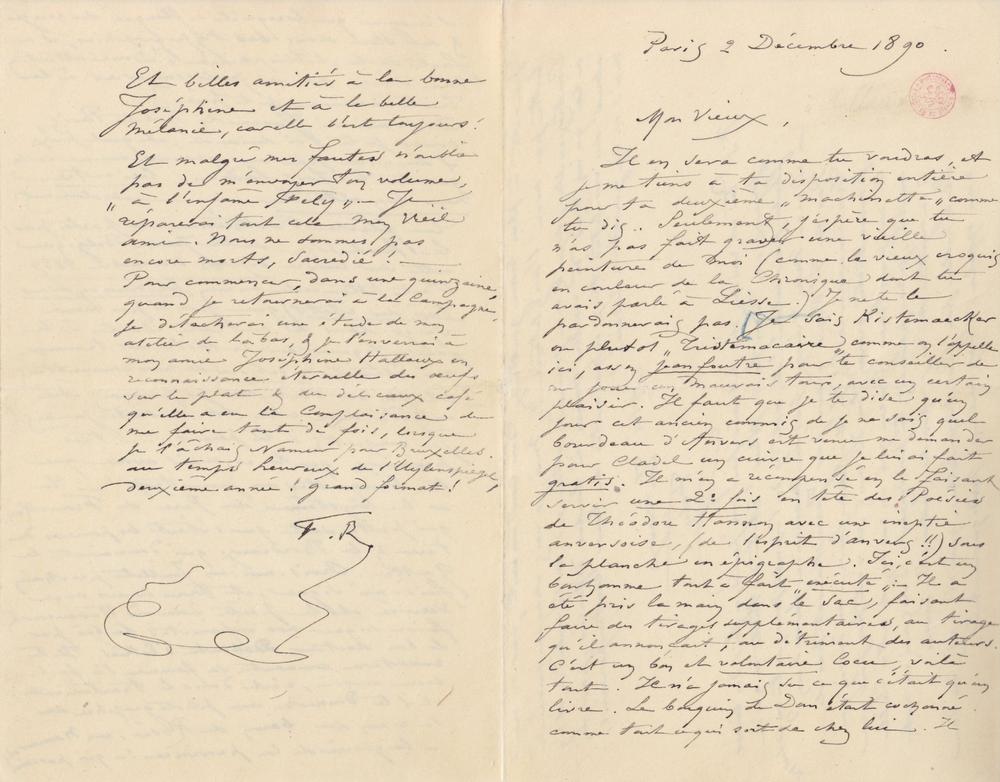 Et billes amitiés à la bonne
Joséphine et à la belle
Mélanie, car elle l'est toujours!
Et malgré mes fautes n'oublie
pas de m'envoyer ton volume,
"à l'infâme Fély" – Je
réparerai tout cela mon vieil
ami. Nous ne sommes pas
encore morts, sacredié! –
Pour commencer, dans une quinzaine
quand je retournerai à la Campagne,
je détacherai une étude de mon
atelier de là bas, & je l'enverrai à
mon amie Joséphine Hallaux en
reconnaissance éternelle des œufs
sur le plat & du délicieux café
qu'elle a eu la Complaisance de
me faire tant de fois, lorsque
je lâchais Namur pour Bruxelles.
au temps heureux de l'Uylenspiegel,
deuxième année! grand format!
F. R
Paris 2 Décembre 1890.
Mon Vieux,
Il en sera comme tu voudras, et
je me tiens à ta disposition entière
pour ta deuxième "machinette" comme
tu dis. Seulement j'espère que tu
n'as pas fait graver une vieille
peinture de moi (comme le vieux croquis
en couleur de la Chronique) dont tu
avais parlé à Liesse.) Je ne te le
pardonnerais pas. Je sais Kistemaecker
ou plutôt "Tristemacaire" comme on l'appelle
ici, assez jeanfoutre pour te conseiller de
me jouer un mauvais tour, avec un certain
plaisir. Il faut que je te dise qu'un
jour cet ancien commis de je ne sais quel
bourdeau d'Anvers est venu me demander
pour Cladel un cuivre que je lui ai fait
gratis. Il m'en a récompensé en le faisant
servir une 2e fois en tête des Poésies
de Théodore Hannon avec une ineptie
anversoise, (de l'esprit d'anvers!!) sous
la planche en épigraphe. Ici, c'est un
bonhomme tout à fait "exécuté". – Il a
été pris la main dans le sac, faisant
faire des tirages supplémentaires, au tirage
qu'il annonçait, au détriment des auteurs.
C'est un bas et volontaire Cocu, voilà
tout. Il n'a jamais su ce que c'était qu'un
livre. Le bouquin de Dom était cochonné
comme tout ce qui sort de chez lui. Il